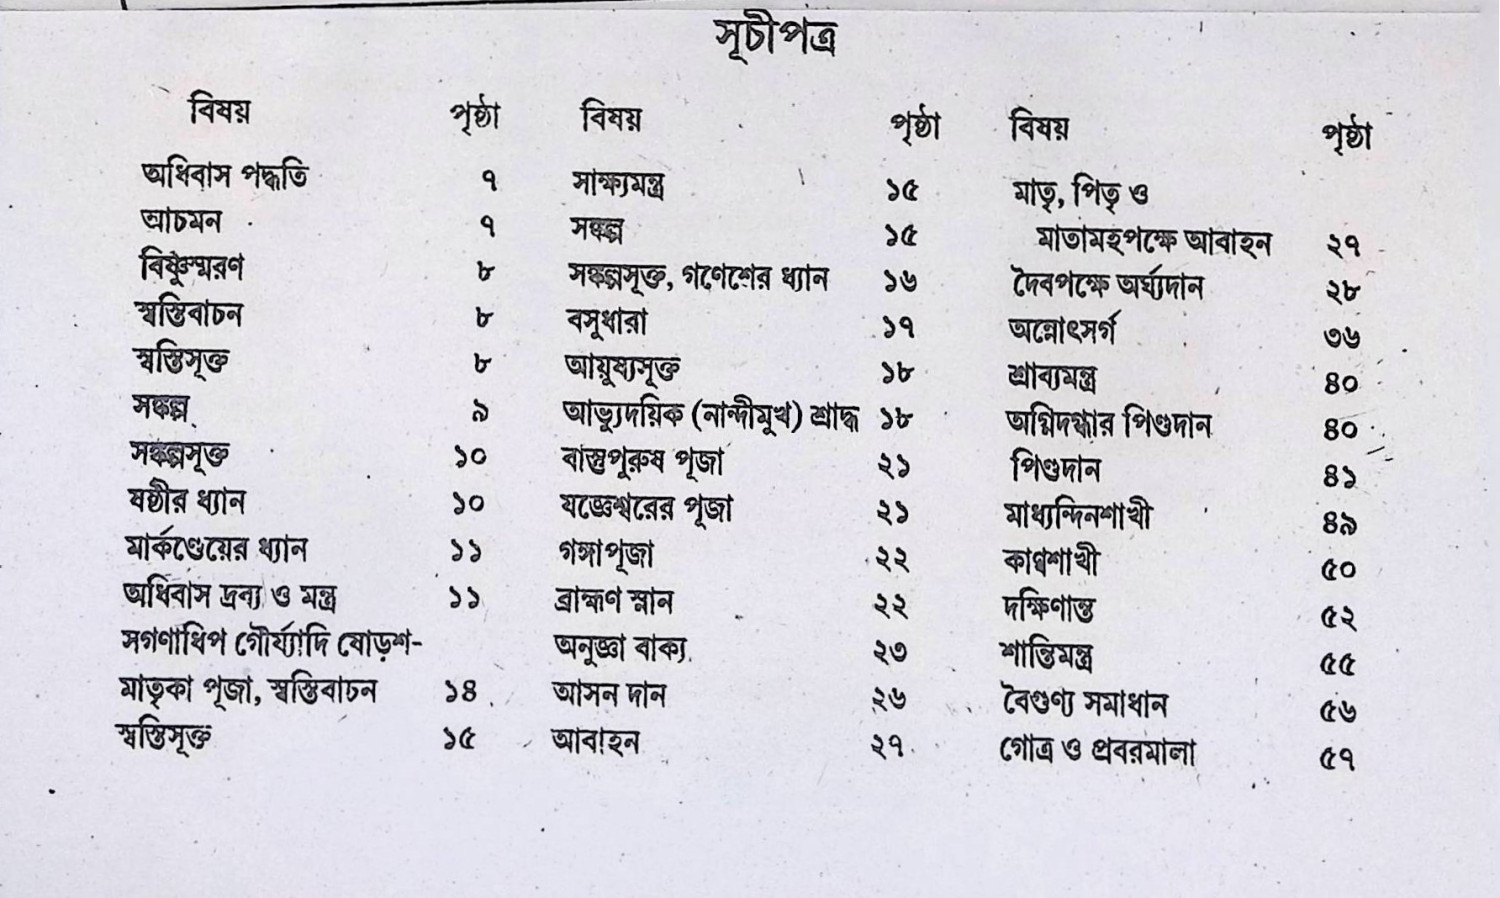 সূচীপত্র
বিষয় পৃষ্ঠা
অধিবাস পদ্ধতি ৭
আচমন ৭
বিষ্ণুস্মরণ ৮
স্বস্তিবাচন ৮
স্বস্তিসূক্ত ৮
সঙ্কল্প ৯
সঙ্কল্পসূক্ত ১০
ষষ্ঠীর ধ্যান ১০
মার্কণ্ডেয়ের ধ্যান ১১
অধিবাস দ্রব্য ও মন্ত্র ১১
সগণাধিপ গৌর্য্যাদি ষোড়শ-
মাতৃকা পূজা, স্বস্তিবাচন ১৪
স্বস্তিসূক্ত ১৫
বিষয় পৃষ্ঠা
সাক্ষ্যমন্ত্র ১৫
সঙ্কল্প ১৫
সঙ্কল্পসূক্ত, গণেশের ধ্যান ১৬
বসুধারা ১৭
আয়ুষ্যসূক্ত ১৮
আভ্যুদয়িক (নান্দীমুখ) শ্রাদ্ধ ১৮
বাস্তুপুরুষ পূজা ২১
যজ্ঞেশ্বরের পূজা ২১
গঙ্গাপূজা ২২
ব্রাহ্মণ স্নান ২২
অনুজ্ঞা বাক্য ২৩
আসন দান ২৬
আবাহন ২৭
বিষয় পৃষ্ঠা
মাতৃ, পিতৃ ও
মাতামহপক্ষে আবাহন ২৭
দৈবপক্ষে অর্ঘ্যদান ২৮
অন্নোৎসর্গ ৩৬
শ্রাব্যমন্ত্র ৪০
অগ্নিদগ্ধার পিণ্ডদান ৪০
পিণ্ডদান ৪১
মাধ্যন্দিনশাখী ৪৯
কাণ্বশাখী ৫০
দক্ষিণান্ত ৫২
শান্তিমন্ত্র ৫৫
বৈগুণ্য সমাধান ৫৬
গোত্র ও প্রবরমালা ৫৭